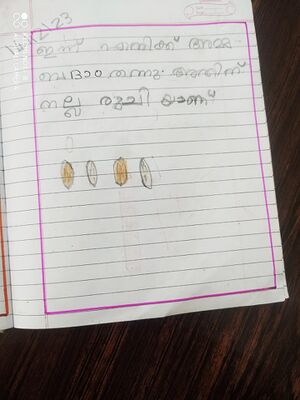 14/12/23
ഇന്ന് എനിക്ക് അമ്മ
ബദാം തന്നു. അതിന്
നല്ല രുചി യാണ്